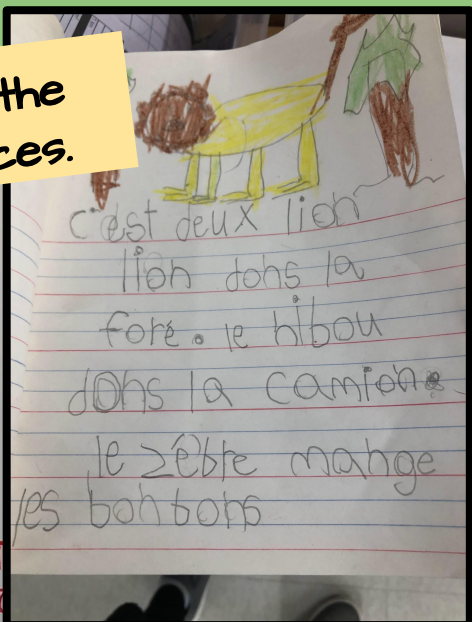 the
ces.
c'est deux lion
lion dons la
foré. le hibou
dons la camion.
le zèbre mange
les bonbons